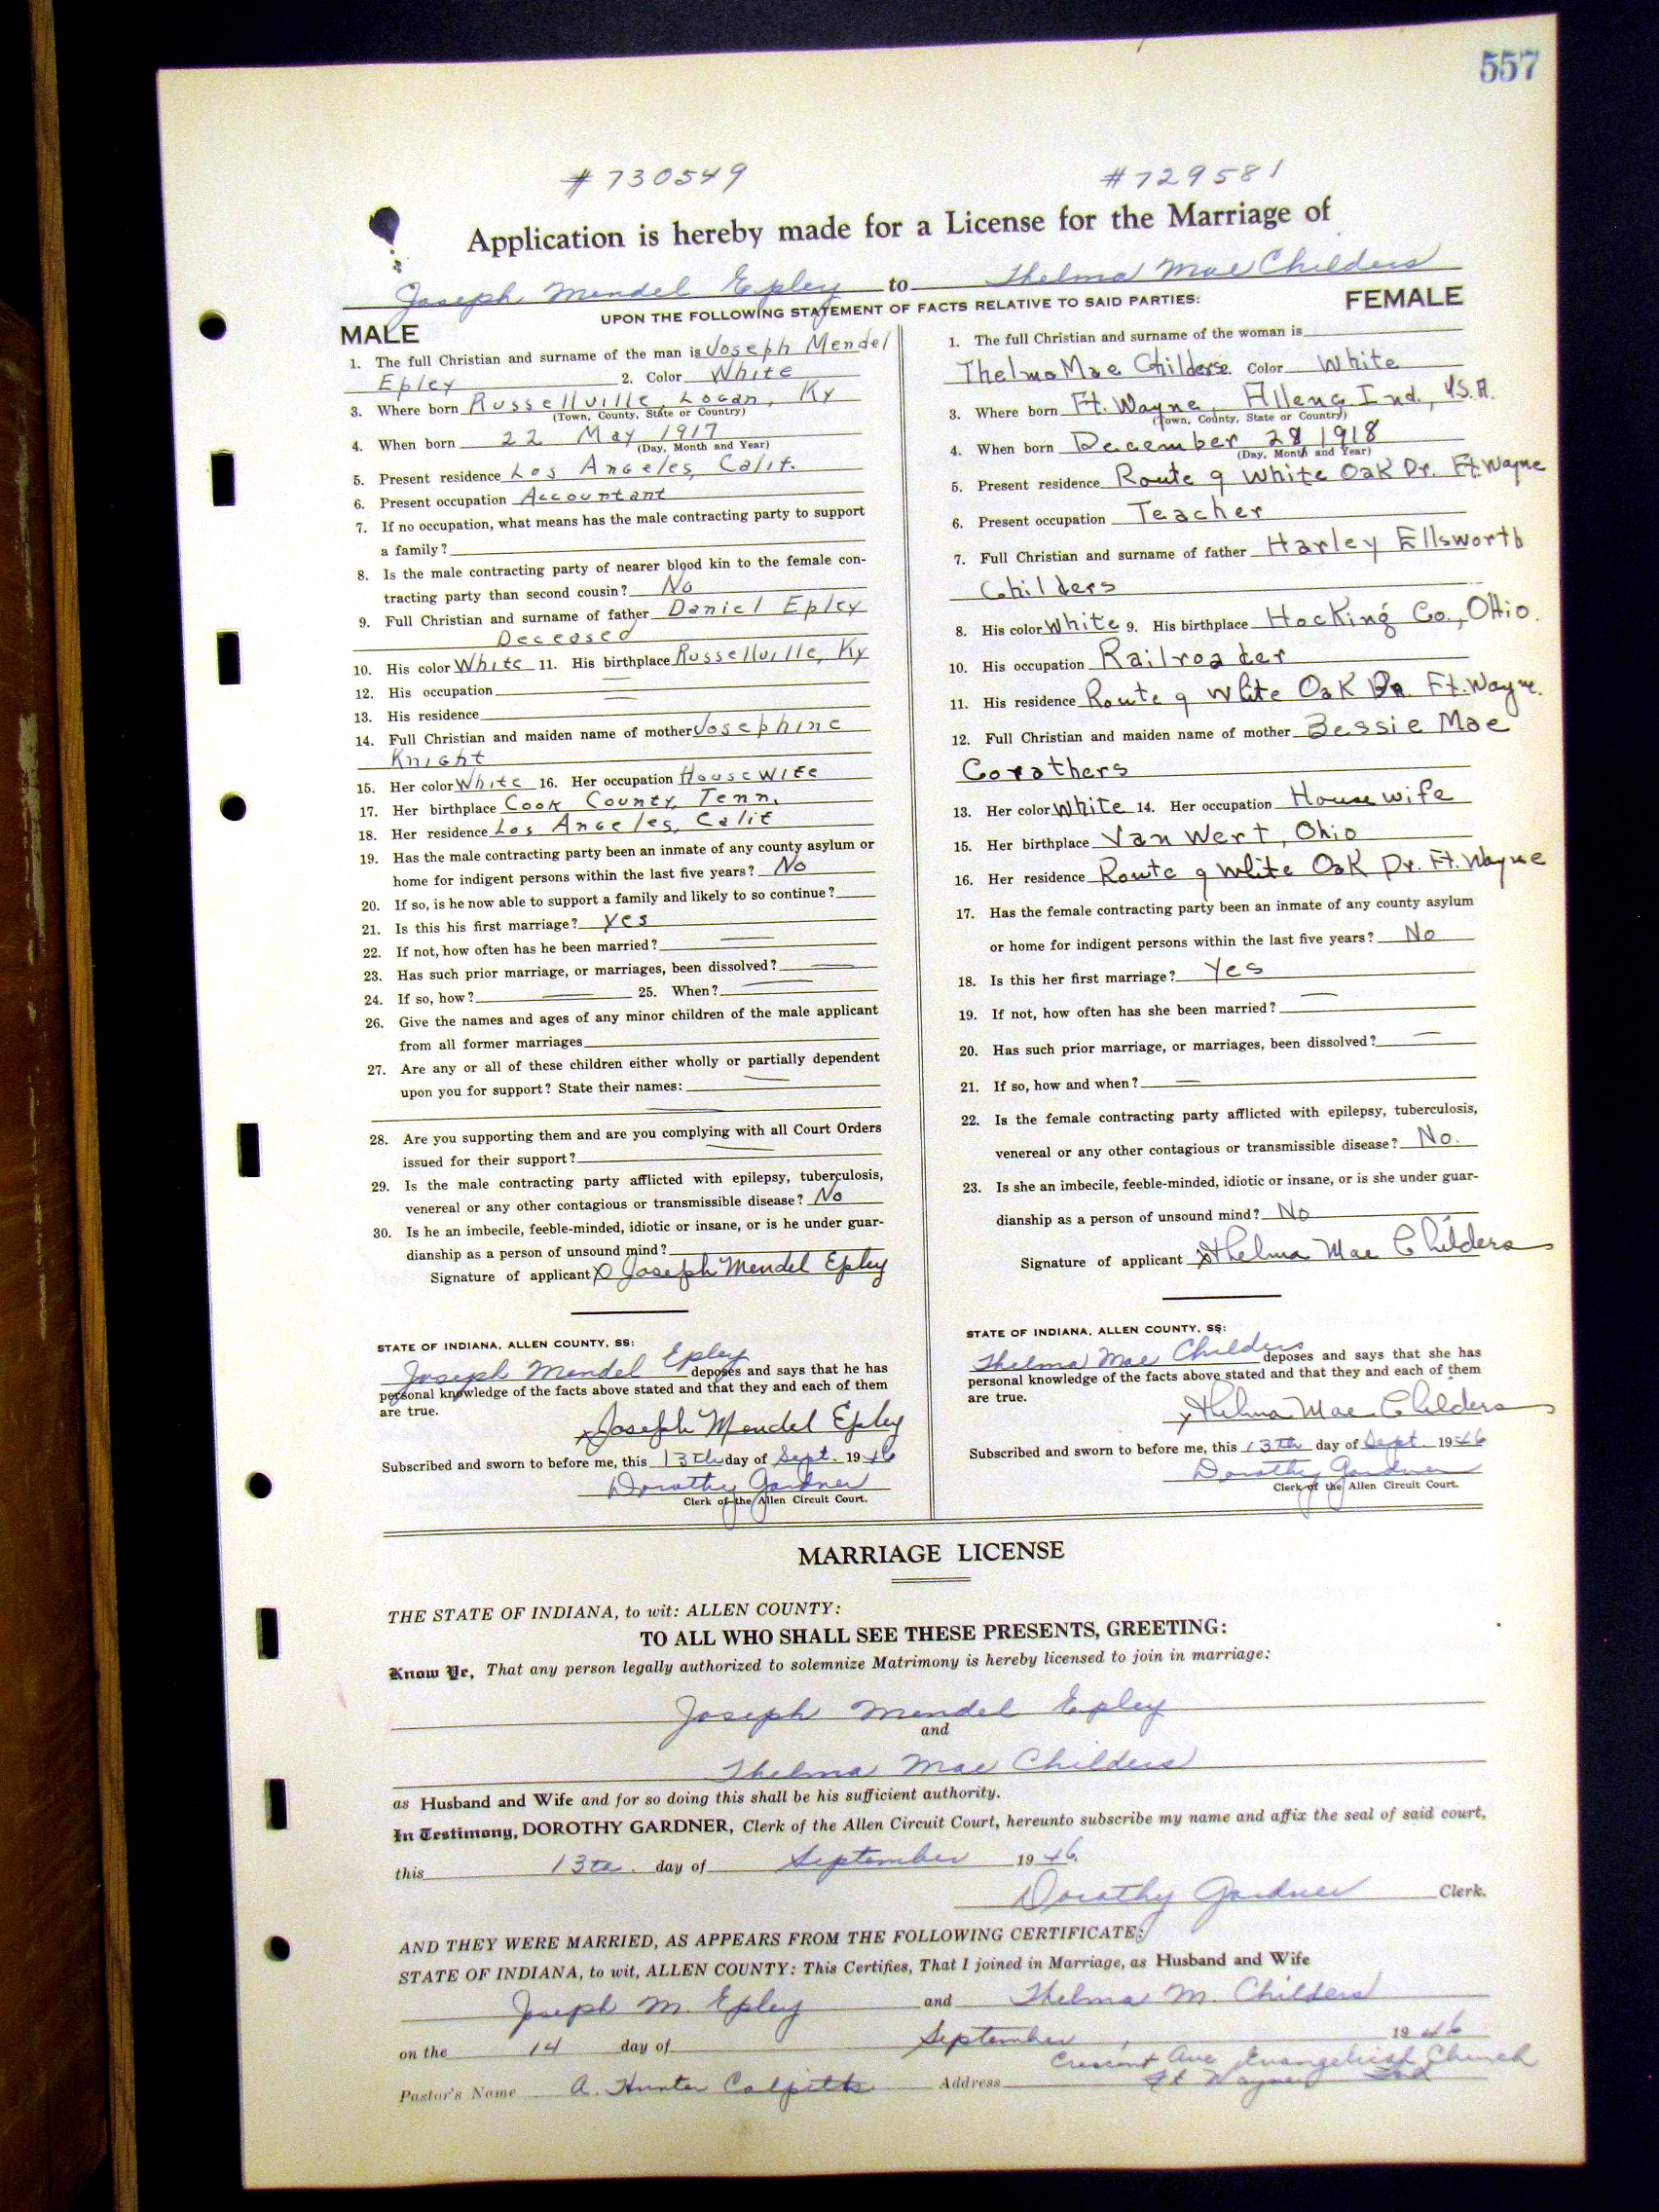 557
# 730549 # 729581
Application is hereby made for a License for the Marriage of
Joseph Mendel Epley to Thelma Mae Childers
UPON THE FOLLOWING STATEMENT OF FACTS RELATIVE TO SAID PARTIES:
MALE
1. The full Christian and surname of the man is Joseph Mendel
Epley 2. Color White
3. Where born Russellville, Logan, Ky
(Town, County, State or Country)
4. When born 22 May 1917
(Day, Month and Year)
5. Present residence Los Angeles, Calif.
6. Present occupation Accountant
7. If no occupation, what means has the male contracting party to support
a family?
8. Is the male contracting party of nearer blood kin to the female con-
tracting party than second cousin? No
9. Full Christian and surname of father Daniel Epley
Deceased
10. His color White 11. His birthplace Russellville, Ky
12. His occupation —
13. His residence —
14. Full Christian and maiden name of mother Josephine
Knight
15. Her color White 16. Her occupation Housewife
17. Her birthplace Cook County, Tenn.
18. Her residence Los Angeles, Calif
19. Has the male contracting party been an inmate of any county asylum or
home for indigent persons within the last five years? No
20. If so, is he now able to support a family and likely to so continue?
21. Is this his first marriage? Yes
22. If not, how often has he been married? —
23. Has such prior marriage, or marriages, been dissolved? —
24. If so, how? — 25. When? —
26. Give the names and ages of any minor children of the male applicant
from all former marriages
27. Are any or all of these children either wholly or partially dependent
upon you for support? State their names: —
—
28. Are you supporting them and are you complying with all Court Orders
issued for their support? —
29. Is the male contracting party afflicted with epilepsy, tuberculosis,
venereal or any other contagious or transmissible disease? No
30. Is he an imbecile, feeble-minded, idiotic or insane, or is he under guar-
dianship as a person of unsound mind?
Signature of applicant X Joseph Mendel Epley
STATE OF INDIANA, ALLEN COUNTY, SS:
Joseph Mendel Epley deposes and says that he has
personal knowledge of the facts above stated and that they and each of them
are true.
x Joseph Mendel Epley
Subscribed and sworn to before me, this 13th day of Sept. 1946
Dorothy Gardner
Clerk of the Allen Circuit Court.
FEMALE
1. The full Christian and surname of the woman is
Thelma Mae Childers 2. Color White
3. Where born Ft. Wayne, Allen, Ind., U.S.A.
(Town, County, State or Country)
4. When born December 28, 1918
(Day, Month and Year)
5. Present residence Route 9 White Oak Dr. Ft. Wayne
6. Present occupation Teacher
7. Full Christian and surname of father Harley Ellsworth
Childers
8. His color White 9. His birthplace Hocking Co., Ohio.
10. His occupation Railroader
11. His residence Route 9 White Oak Dr. Ft. Wayne.
12. Full Christian and maiden name of mother Bessie Mae
Corathers
13. Her color White 14. Her occupation Housewife
15. Her birthplace Van Wert, Ohio
16. Her residence Route 9 White Oak Dr. Ft. Wayne
17. Has the female contracting party been an inmate of any county asylum
or home for indigent persons within the last five years? No
18. Is this her first marriage? Yes
19. If not, how often has she been married? —
20. Has such prior marriage, or marriages, been dissolved? —
21. If so, how and when? —
22. Is the female contracting party afflicted with epilepsy, tuberculosis,
venereal or any other contagious or transmissible disease? No.
23. Is she an imbecile, feeble-minded, idiotic or insane, or is she under guar-
dianship as a person of unsound mind? No
Signature of applicant x Thelma Mae Childers
STATE OF INDIANA, ALLEN COUNTY, SS:
Thelma Mae Childers deposes and says that she has
personal knowledge of the facts above stated and that they and each of them
are true.
x Thelma Mae Childers
Subscribed and sworn to before me, this 13th day of Sept. 1946
Dorothy Gardner
Clerk of the Allen Circuit Court.
MARRIAGE LICENSE
THE STATE OF INDIANA, to wit: ALLEN COUNTY:
TO ALL WHO SHALL SEE THESE PRESENTS, GREETING:
Know Ye, That any person legally authorized to solemnize Matrimony is hereby licensed to join in marriage:
Joseph Mendel Epley
and
Thelma Mae Childers
as Husband and Wife and for so doing this shall be his sufficient authority.
In Testimony, DOROTHY GARDNER, Clerk of the Allen Circuit Court, hereunto subscribe my name and affix the seal of said court,
this 13th. day of September 1946.
Dorothy Gardner Clerk.
AND THEY WERE MARRIED, AS APPEARS FROM THE FOLLOWING CERTIFICATE:
STATE OF INDIANA, to wit, ALLEN COUNTY: This Certifies, That I joined in Marriage, as Husband and Wife
Joseph M. Epley and Thelma M. Childers
on the 14 day of September, 1946
Pastor's Name A. Hunter Colpitts Address Crescent Ave Evangelical Church
Ft Wayne Ind